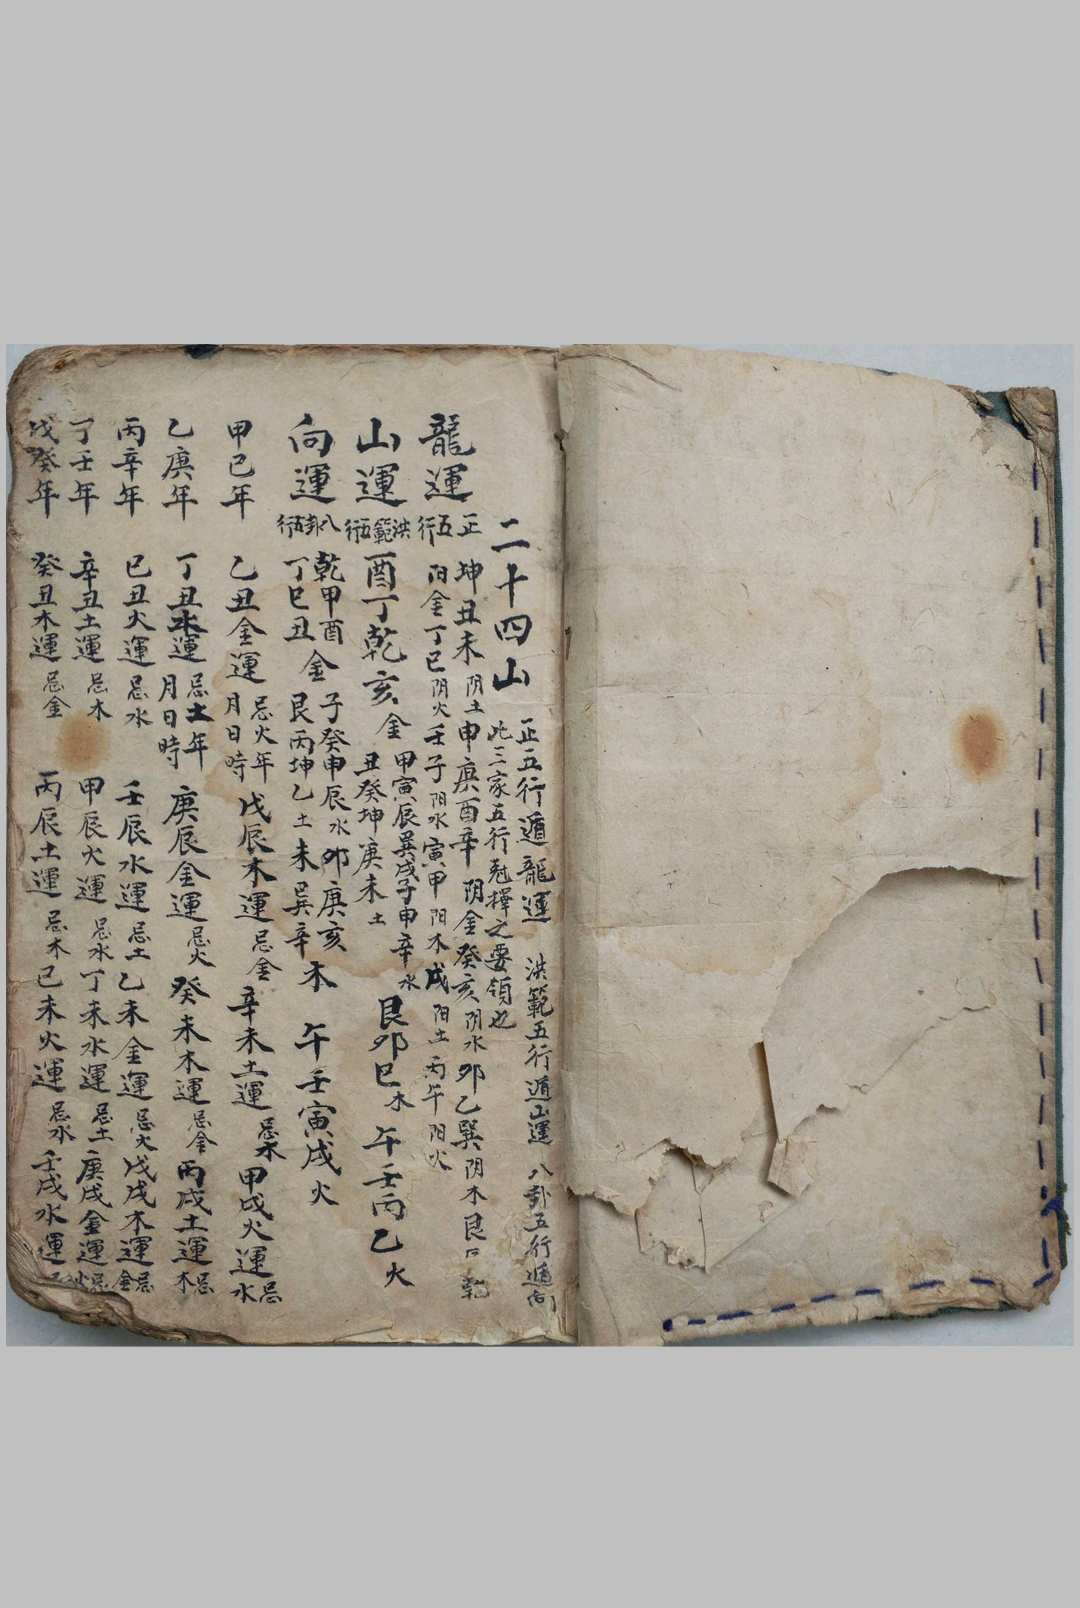 二十四山 正五行遁龍運 洪範五行遁山運 八卦五行遁向
此三家五行尅擇之要領也
龍運 正五行 坤丑未阴土申庚酉辛阴金癸亥阴水卯乙巽阴木艮 乾
阳金丁巳阴火壬子阳水寅甲阳木戌阳土丙午阳火
山運 洪範五行 酉丁乾亥金 甲寅辰巽戌子申辛水 丑癸坤庚未土 艮卯巳木 午壬丙乙火
向運 八卦五行 乾甲酉丁巳丑金 子癸申辰水 艮丙坤乙土 卯庚亥未巽辛木 午壬寅戌火
甲己年 乙丑金運忌火年月日時 戊辰木運忌金 辛未土運忌木 甲戌火運忌水
乙庚年 丁丑水運忌土年月日時 庚辰金運忌火 癸未木運忌金 丙戌土運忌木
丙辛年 己丑火運忌水 壬辰水運忌土 乙未金運忌火 戊戌木運忌金
丁壬年 辛丑土運忌木 甲辰火運忌水 丁未水運忌土 庚戌金運忌火
戊癸年 癸丑木運忌金 丙辰土運忌木 己未火運忌水 壬戌水運